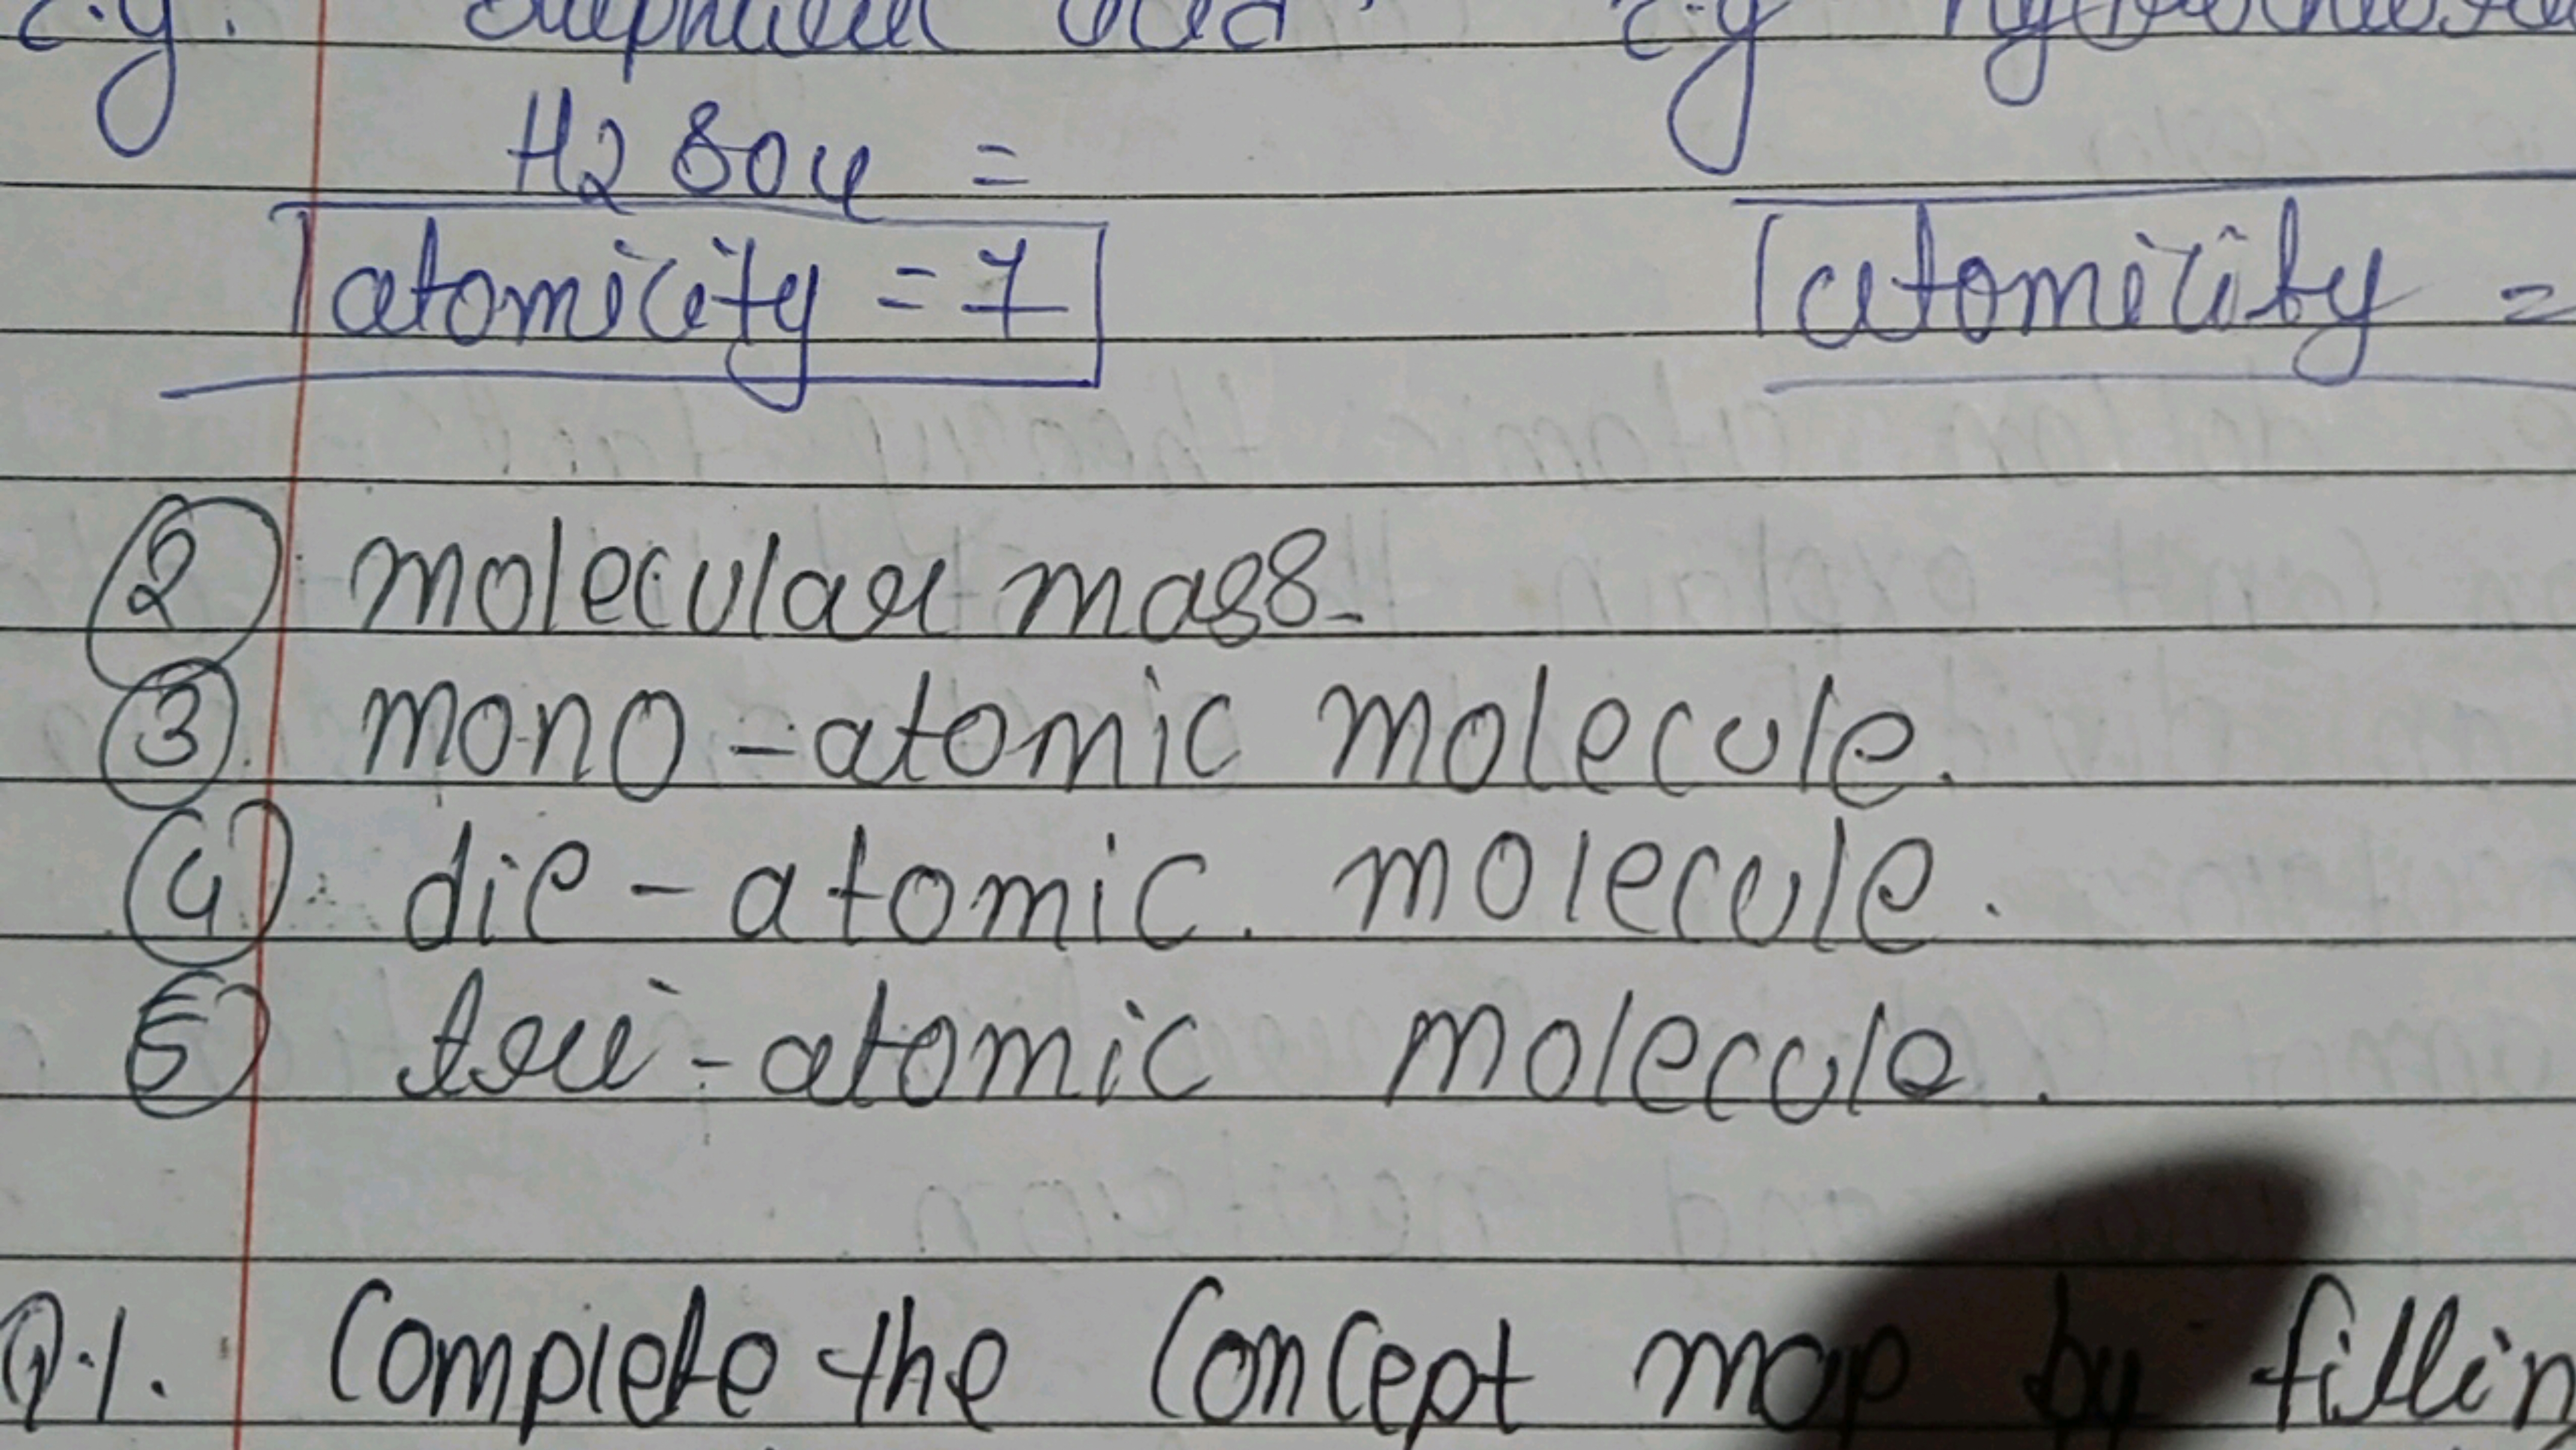 e.g. Sulphuric acid e.g
H2SO4 =
atomicity = 7 atomicity =
② molecular mass.
③ mono-atomic molecule.
④ die-atomic molecule.
⑤ tri-atomic molecule.
Q.1. Complete the concept map by fillin